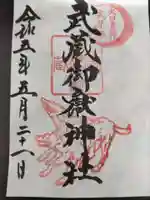 武蔵御嶽神社
令和五年五月二十一日